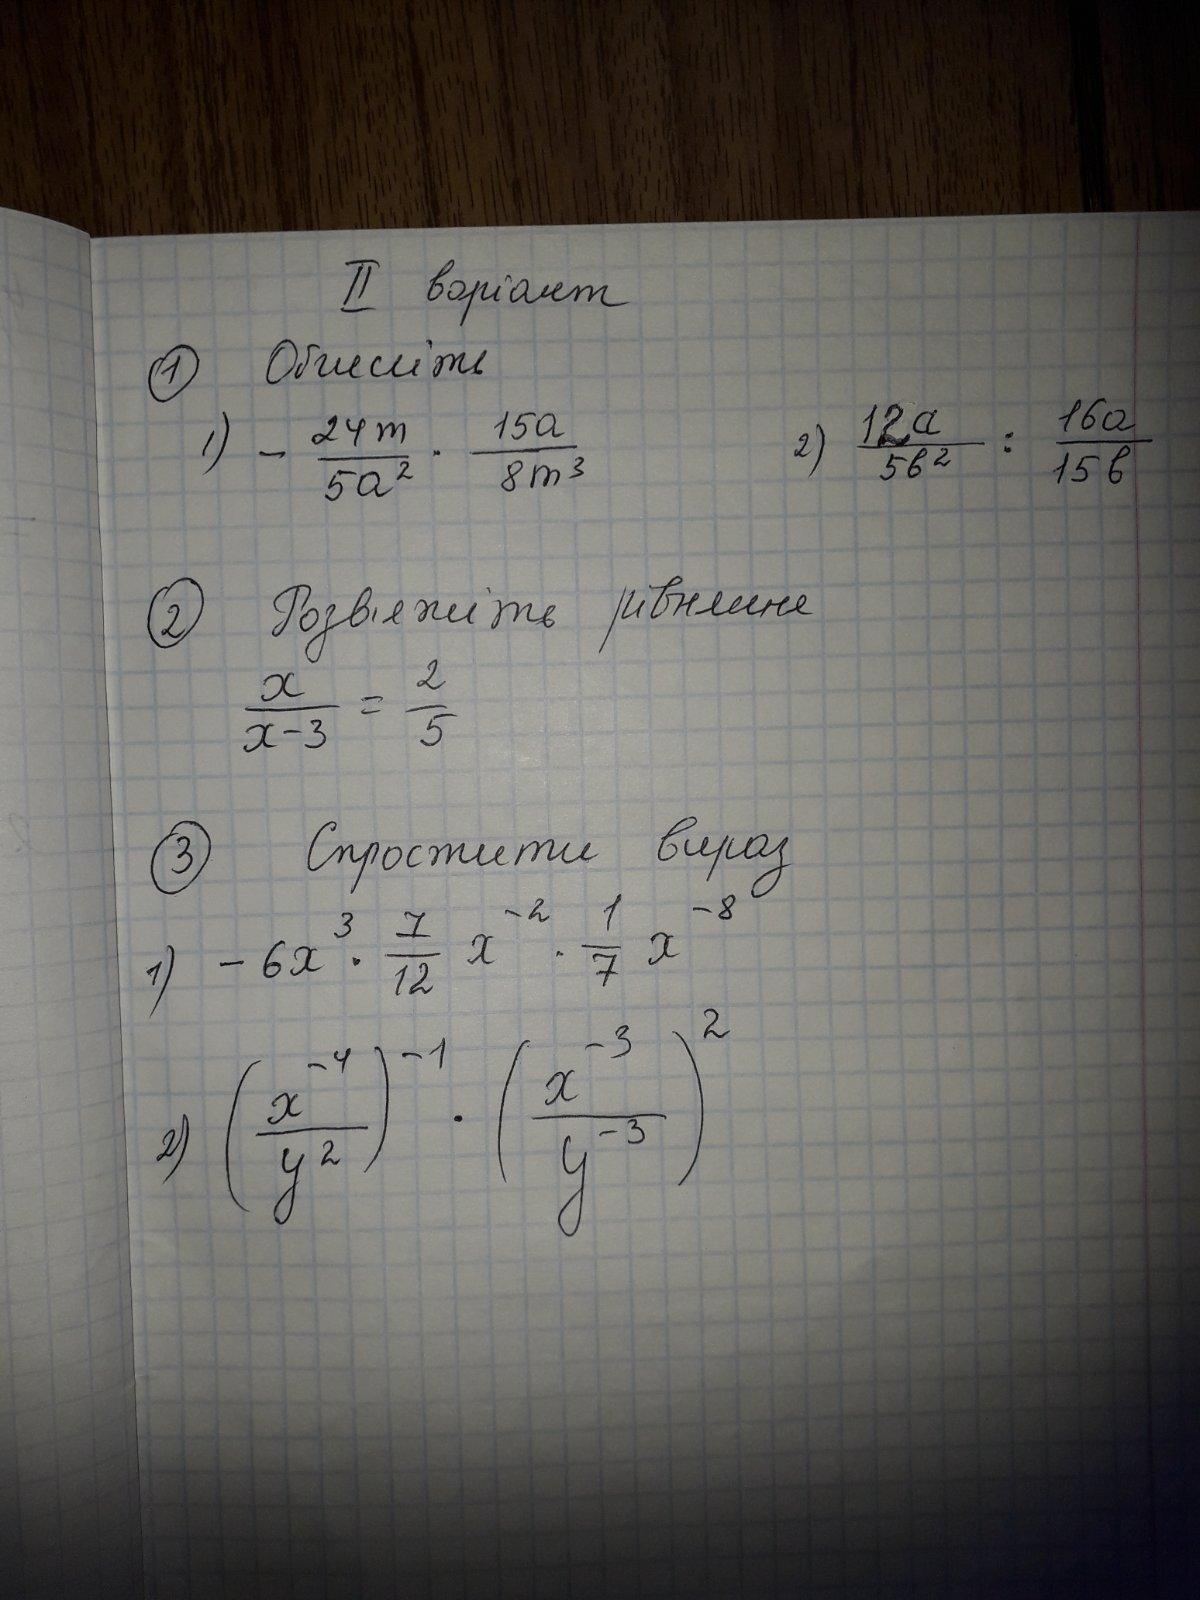 II варіант
① Обчисліть
1) - 24m/5a² · 15a/8m³ 2) 12a/5b² : 16a/15b
② Розв'яжіть рівняння
x/(x-3) = 2/5
③ Спростити вираз
1) -6x³ · 7/12 x⁻² · 1/7 x⁻⁸
2) (x⁻⁴/y²)⁻¹ · (x⁻³/y⁻³)²